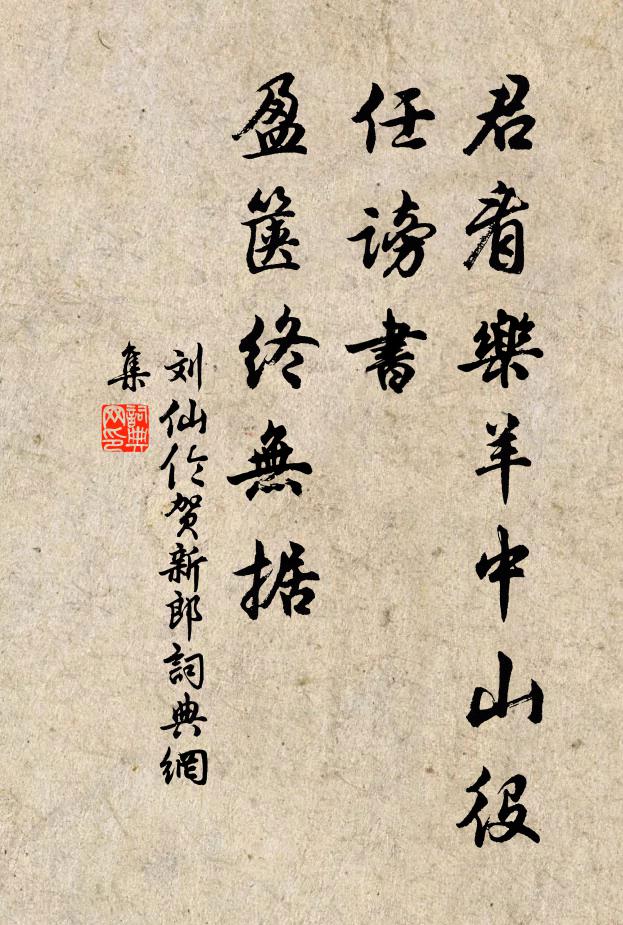 君看樂羊中山役
任謗書
盈篋終無据
刘仙伦贺新郎詞典網
集
詞典網印